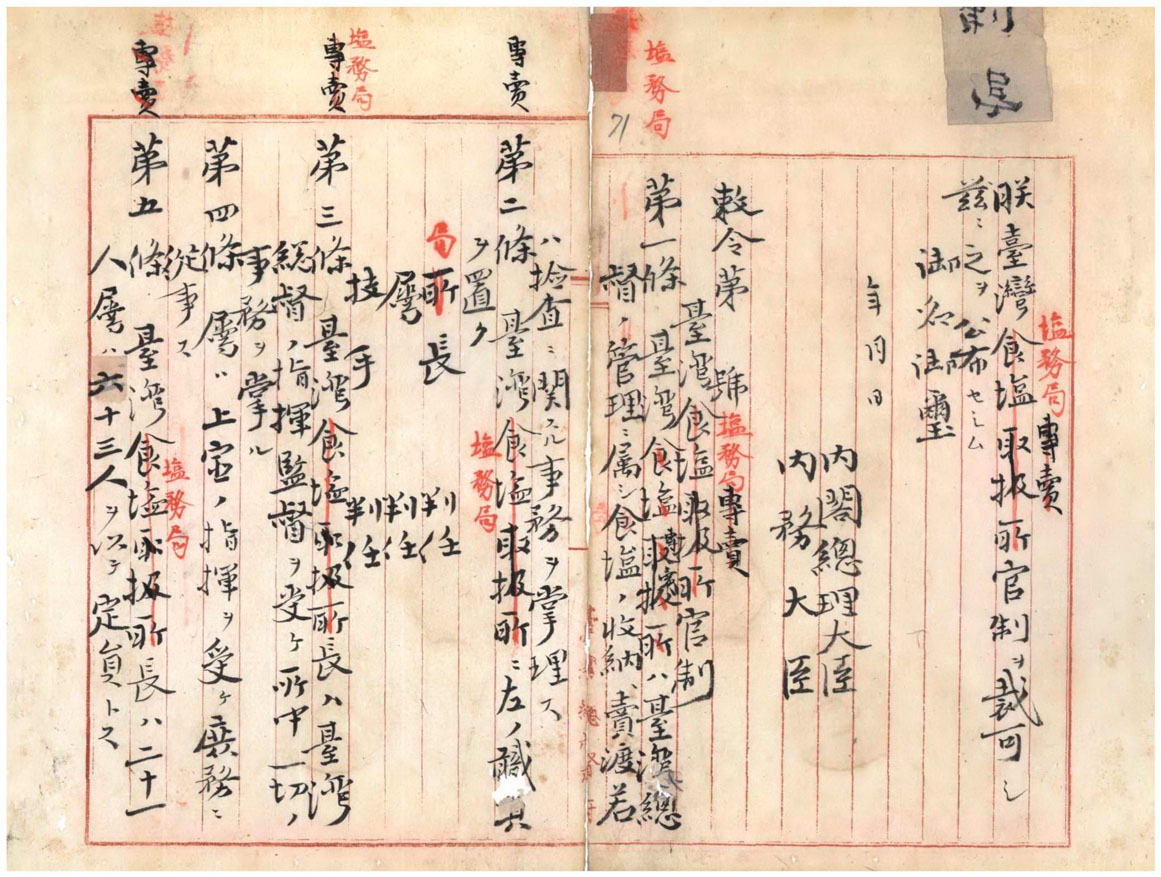 制
塩務局
71
塩務局
專賣
朕臺灣食塩取扱所官制ヲ裁可シ
茲ニ之ヲ公布セシム
御名御璽
年月日
内閣總理大臣
内務大臣
敕令第 號
塩務局
專賣
臺灣食塩取扱所官制
第一條 臺灣食塩取扱所ハ臺灣總
督ノ管理ニ属シ食塩ノ收納、賣渡若
ハ撿査ニ関スル事務ヲ掌理ス
專賣
塩務局
第二條 臺灣食塩取扱所ニ左ノ職員
ヲ置ク
局
所長 判任
属 判任
技手 判任
塩務局
專賣
第三條 臺灣食塩取扱所長ハ臺灣
総督ノ指揮監督ヲ受ケ所中一切ノ
事務ヲ掌ル
第四條 属ハ上官ノ指揮ヲ受ケ庶務ニ
従事ス
專賣
塩務局
第五條 臺灣食塩取扱所長ハ二十一
人属ハ六十三人ヲ以テ定員トス